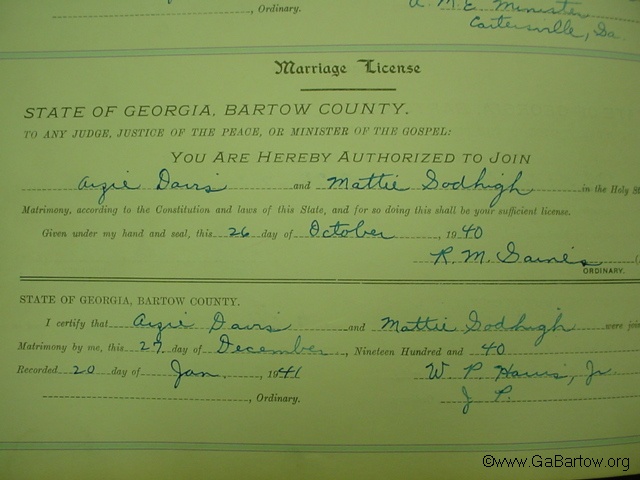 , Ordinary.
A. M. E. Minister
Cartersville, Ga.
Marriage License
STATE OF GEORGIA, BARTOW COUNTY.
TO ANY JUDGE, JUSTICE OF THE PEACE, OR MINISTER OF THE GOSPEL:
YOU ARE HEREBY AUTHORIZED TO JOIN
Arzie Davis and Mattie Godhigh in the Holy St
Matrimony, according to the Constitution and laws of this State, and for so doing this shall be your sufficient license.
Given under my hand and seal, this 26 day of October, 1940
R. M. Gaines
ORDINARY.
STATE OF GEORGIA, BARTOW COUNTY.
I certify that Arzie Davis and Mattie Godhigh were join
Matrimony by me, this 27 day of December, Nineteen Hundred and 40
Recorded 20 day of Jan, 1941 W. P. Harris, Jr.
, Ordinary. J. P.
©www.GaBartow.org